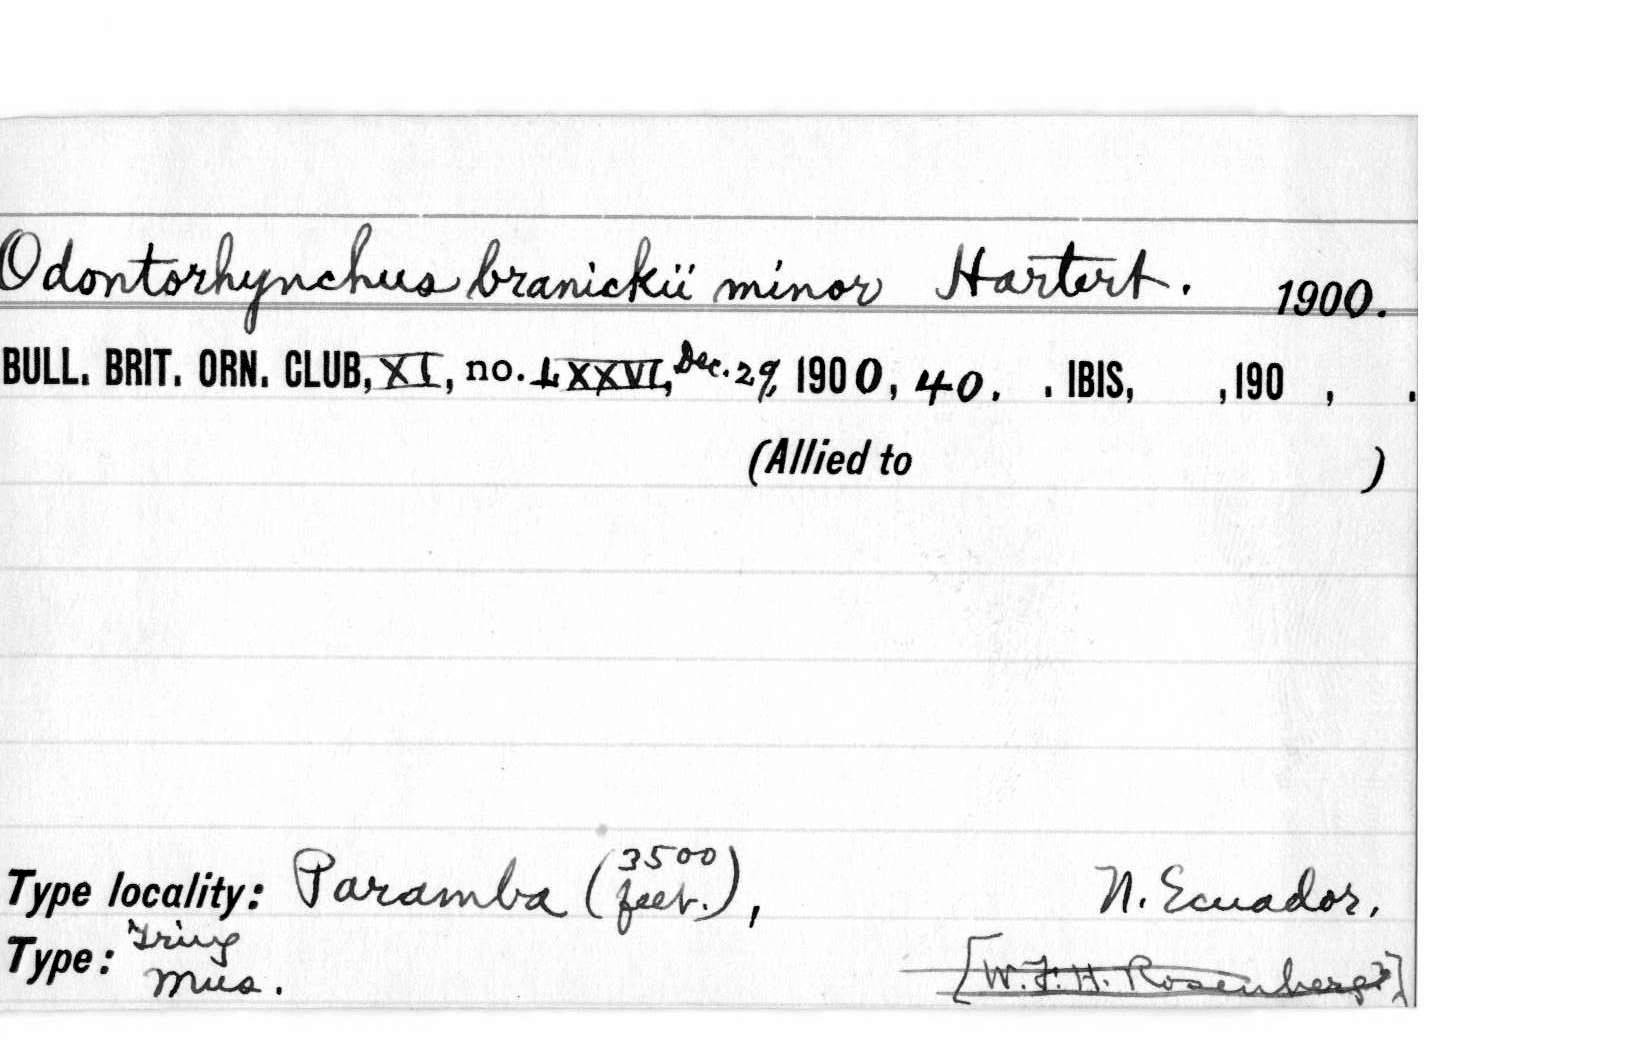 Odontorhynchus branickii minor Hartert. 1900.
BULL. BRIT. ORN. CLUB, XI, no. LXXVI, Dec. 29, 1900, 40. . IBIS, , 190 , .
(Allied to )
Type locality: Paramba (3500 feet.), N. Ecuador,
Type: Tring Mus. [W. F. H. Rosenberg?]